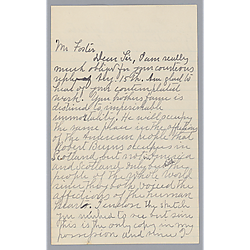 Mr Foster
Dear Sir, I am really
much obliged for your courteous
reply of the 15th. Am glad to
hear of your contemplated
work. Your brother's fame is
destined to imperishable
immortality. He will occupy
the same place in the affections
of the American people that
Robert Burns occupies in
Scotland but not America
and Scotland only but the
people of the whole world
under they both
affections of the human
heart. I enclose the sketch
you referred to me but since
this is the only copy in my
possession and since I